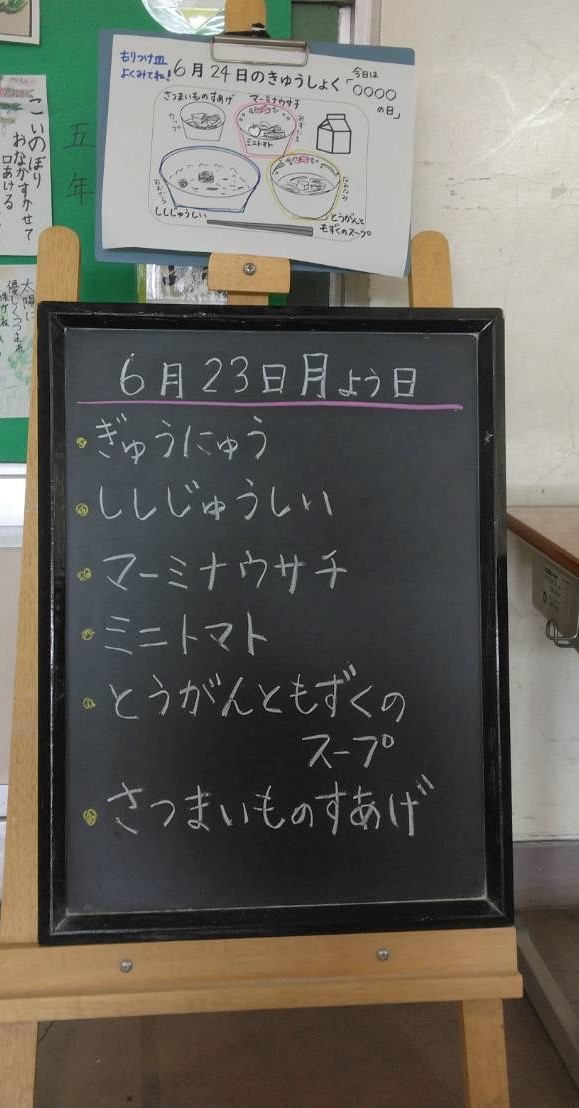 もりつけ皿
よくみてね!
6月24日のきゅうしょく
今日は
「〇〇〇〇
の日」
さつまいものすあげ
マーミナウサチ
ミニトマト
ししじゅうしい
とうがんと
もずくのスープ
五年
こいのぼり
おなかすかせて
口あける
太陽に
優しくつつまれ
6月23日月よう日
ぎゅうにゅう
ししじゅうしい
マーミナウサチ
ミニトマト
とうがんともずくの
スープ
さつまいものすあげ